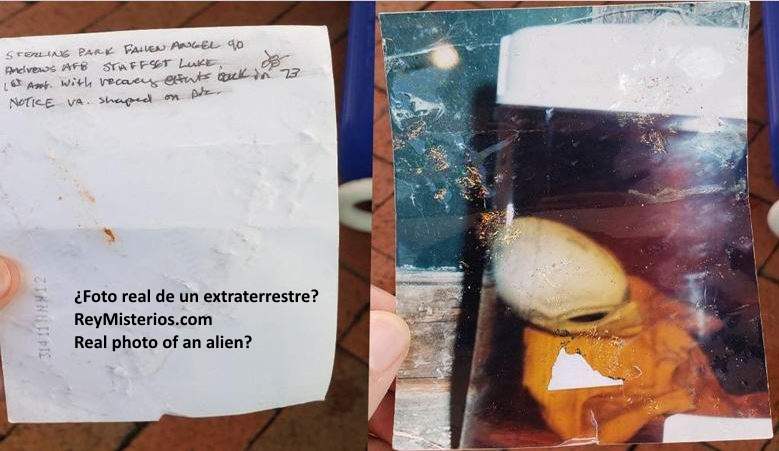 STERLING PARK FALLEN ANGEL 90
ANDREWS AFB STAFFSGT LUKE,
1st Asst. With recovery efforts back in 73
NOTICE VA. shaped on Pic.
¿Foto real de un extraterrestre?
ReyMisterios.com
Real photo of an alien?